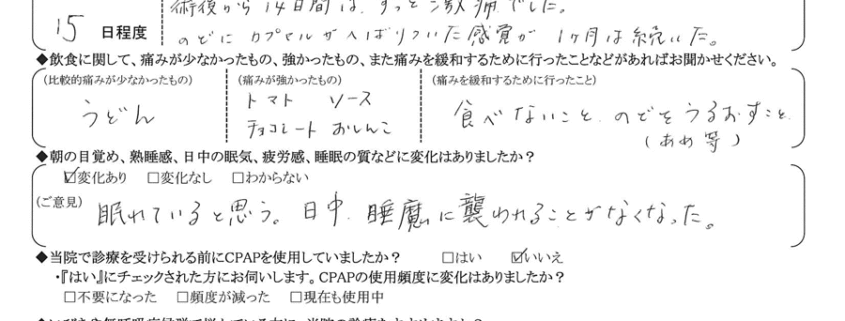 術後から14日間は、ずっと激痛でした。
15 日程度
のどにカプセルがへばりついた感覚が1ヶ月は続いた。
◆飲食に関して、痛みが少なかったもの、強かったもの、また痛みを緩和するために行ったことなどがあればお聞かせください。
(比較的痛みが少なかったもの) (痛みが強かったもの) (痛みを緩和するために行ったこと)
うどん
トマト ソース
チョコレート おしんこ
食べないこと、のどをうるおすこと
(あめ等)
◆朝の目覚め、熟睡感、日中の眠気、疲労感、睡眠の質などに変化はありましたか?
☑変化あり □変化なし □わからない
(ご意見)
眠れていると思う。日中、睡魔に襲われることがなくなった。
◆当院で診療を受けられる前にCPAPを使用していましたか? □はい ☑いいえ
・『はい』にチェックされた方にお伺いします。CPAPの使用頻度に変化はありましたか?
□不要になった □頻度が減った □現在も使用中